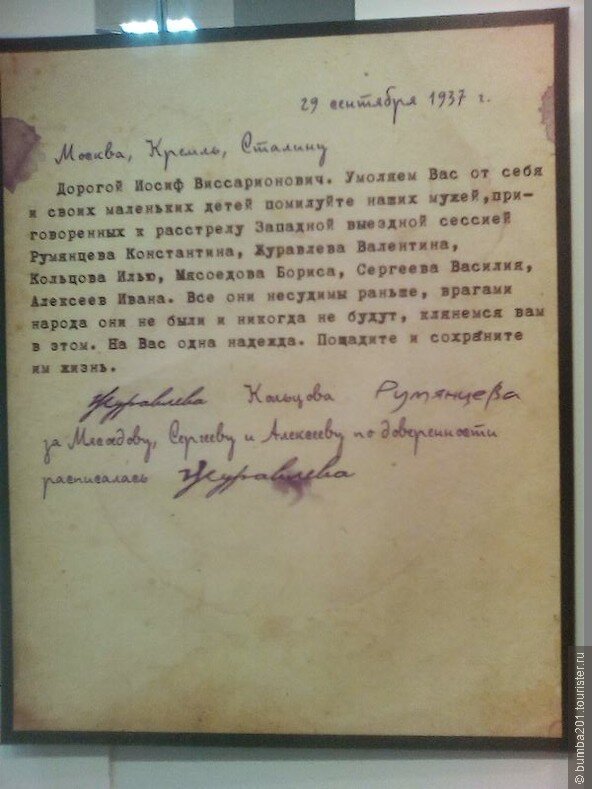 29 сентября 1937 г.
Москва, Кремль, Сталину
Дорогой Иосиф Виссарионович. Умоляем Вас от себя
и своих маленьких детей помилуйте наших мужей,при-
говоренных к расстрелу Западной выездной сессией
Румянцева Константина, Журавлева Валентина,
Кольцова Илью, Мясоедова Бориса, Сергеева Василия,
Алексеев Ивана. Все они несудимы раньше, врагами
народа они не были и никогда не будут, клянемся вам
в этом. На Вас одна надежда. Пощадите и сохраните
им жизнь.
Журавлева Кольцова Румянцева
за Мясоедову, Сергееву и Алексееву по доверенности
расписалась Журавлева
© bumba201.tourister.ru